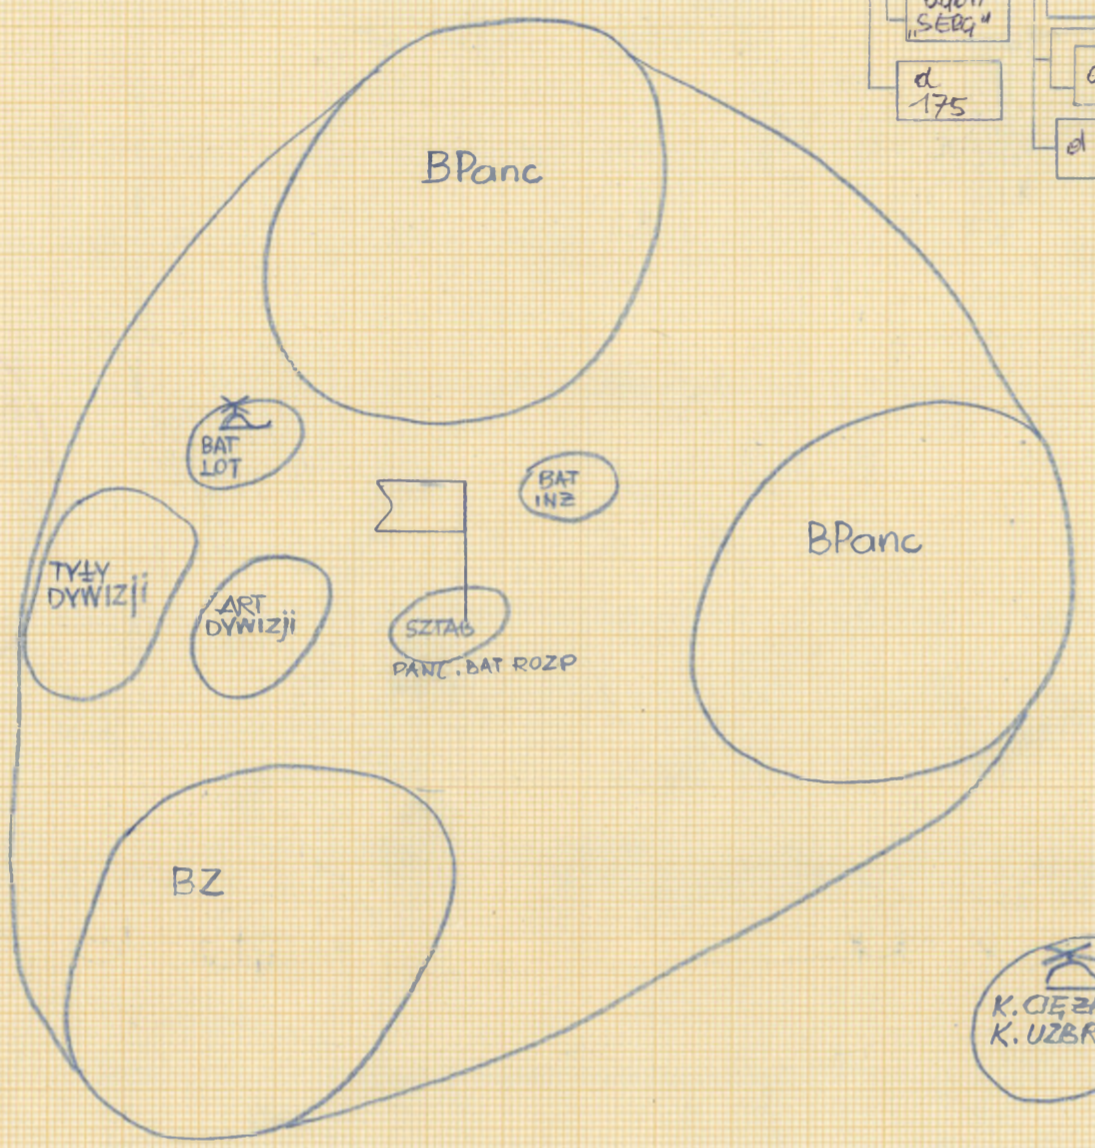 „SERG"
d
175
d
BPanc
BAT
LOT
BAT
INŻ
BPanc
TYŁY
DYWIZji
ART
DYWIZji
SZTAB
PANC. BAT ROZP
BZ
K. CIĘŻ
K. UZBR